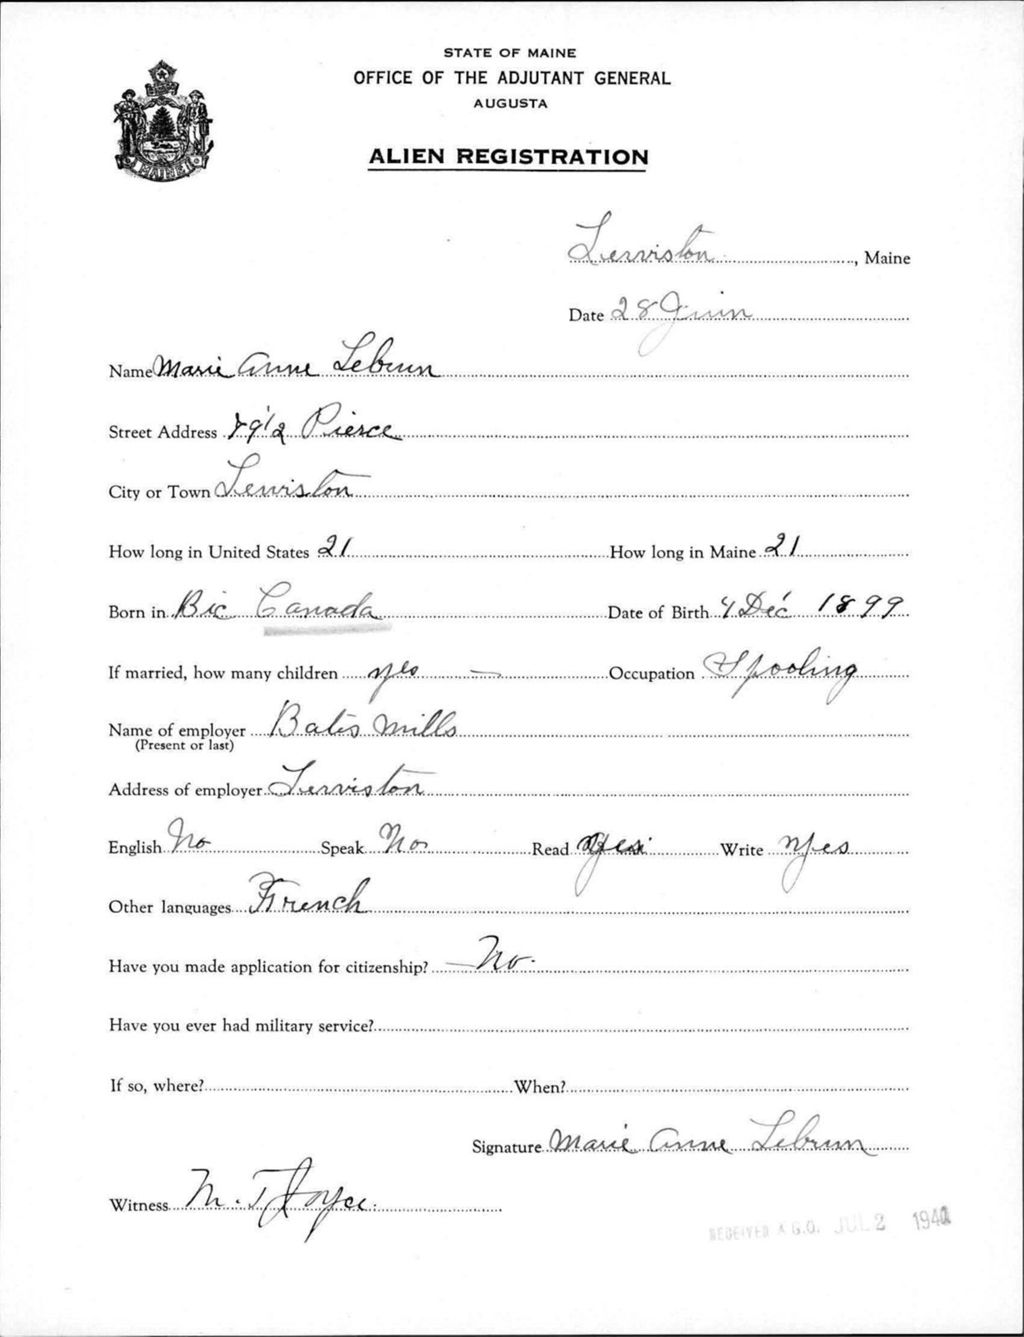 STATE OF MAINE
OFFICE OF THE ADJUTANT GENERAL
AUGUSTA
ALIEN REGISTRATION
MAINE
Lewiston, Maine
Date 28 Juin
Name Marie Anne Lebrun
Street Address Pierce
City or Town Lewiston
How long in United States 21 How long in Maine 21
Born in Bic Canada Date of Birth 4 Déc 1899
If married, how many children yes — Occupation Spooling
Name of employer Bates Mills
(Present or last)
Address of employer Lewiston
English No Speak No Read yes Write yes
Other languages French
Have you made application for citizenship? No.
Have you ever had military service?
If so, where? When?
Signature Marie Anne Lebrun
Witness M. T. Joyce.
RECEIVED A.G.O. JUL 2 1940